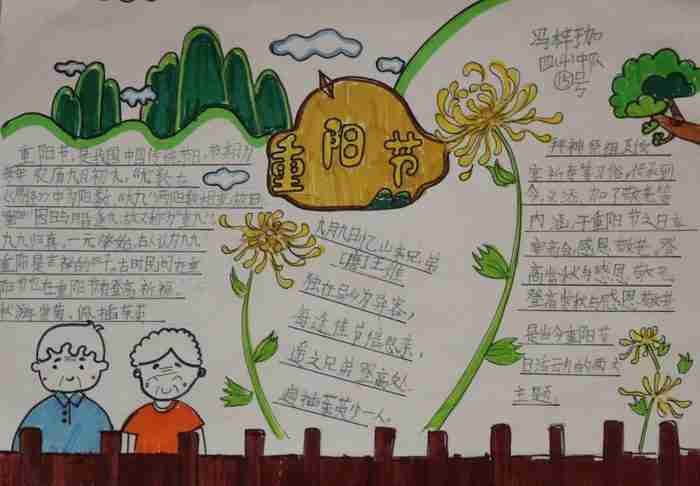 重阳节
冯梓珈
四(4)中队
号
重阳节,是我国中国传统节日,节日为
每年农历九月初九,"九"数在
《易经》中为阳数,"九九"两阳数相重,故曰
因日与月皆逢九,故又称为"重九"。
九九归真,一元肇始,古人认为九九
重阳是吉祥的日子。古时民间在重
阳节也在重阳节有登高祈福、
秋游赏菊、佩插茱萸
九月九日忆山东兄弟
[唐]王维
独在异乡为异客,
每逢佳节倍思亲,
遥知兄弟登高处,
遍插茱萸少一人。
拜神祭祖及饮
宴祈寿等习俗。传承到
今,又添加了敬老等
内涵,于重阳节之日
享高会,感恩敬老。登
高赏秋与感恩敬老
登高赏秋与感恩敬老
是当今重阳节
日活动的两大
主题。